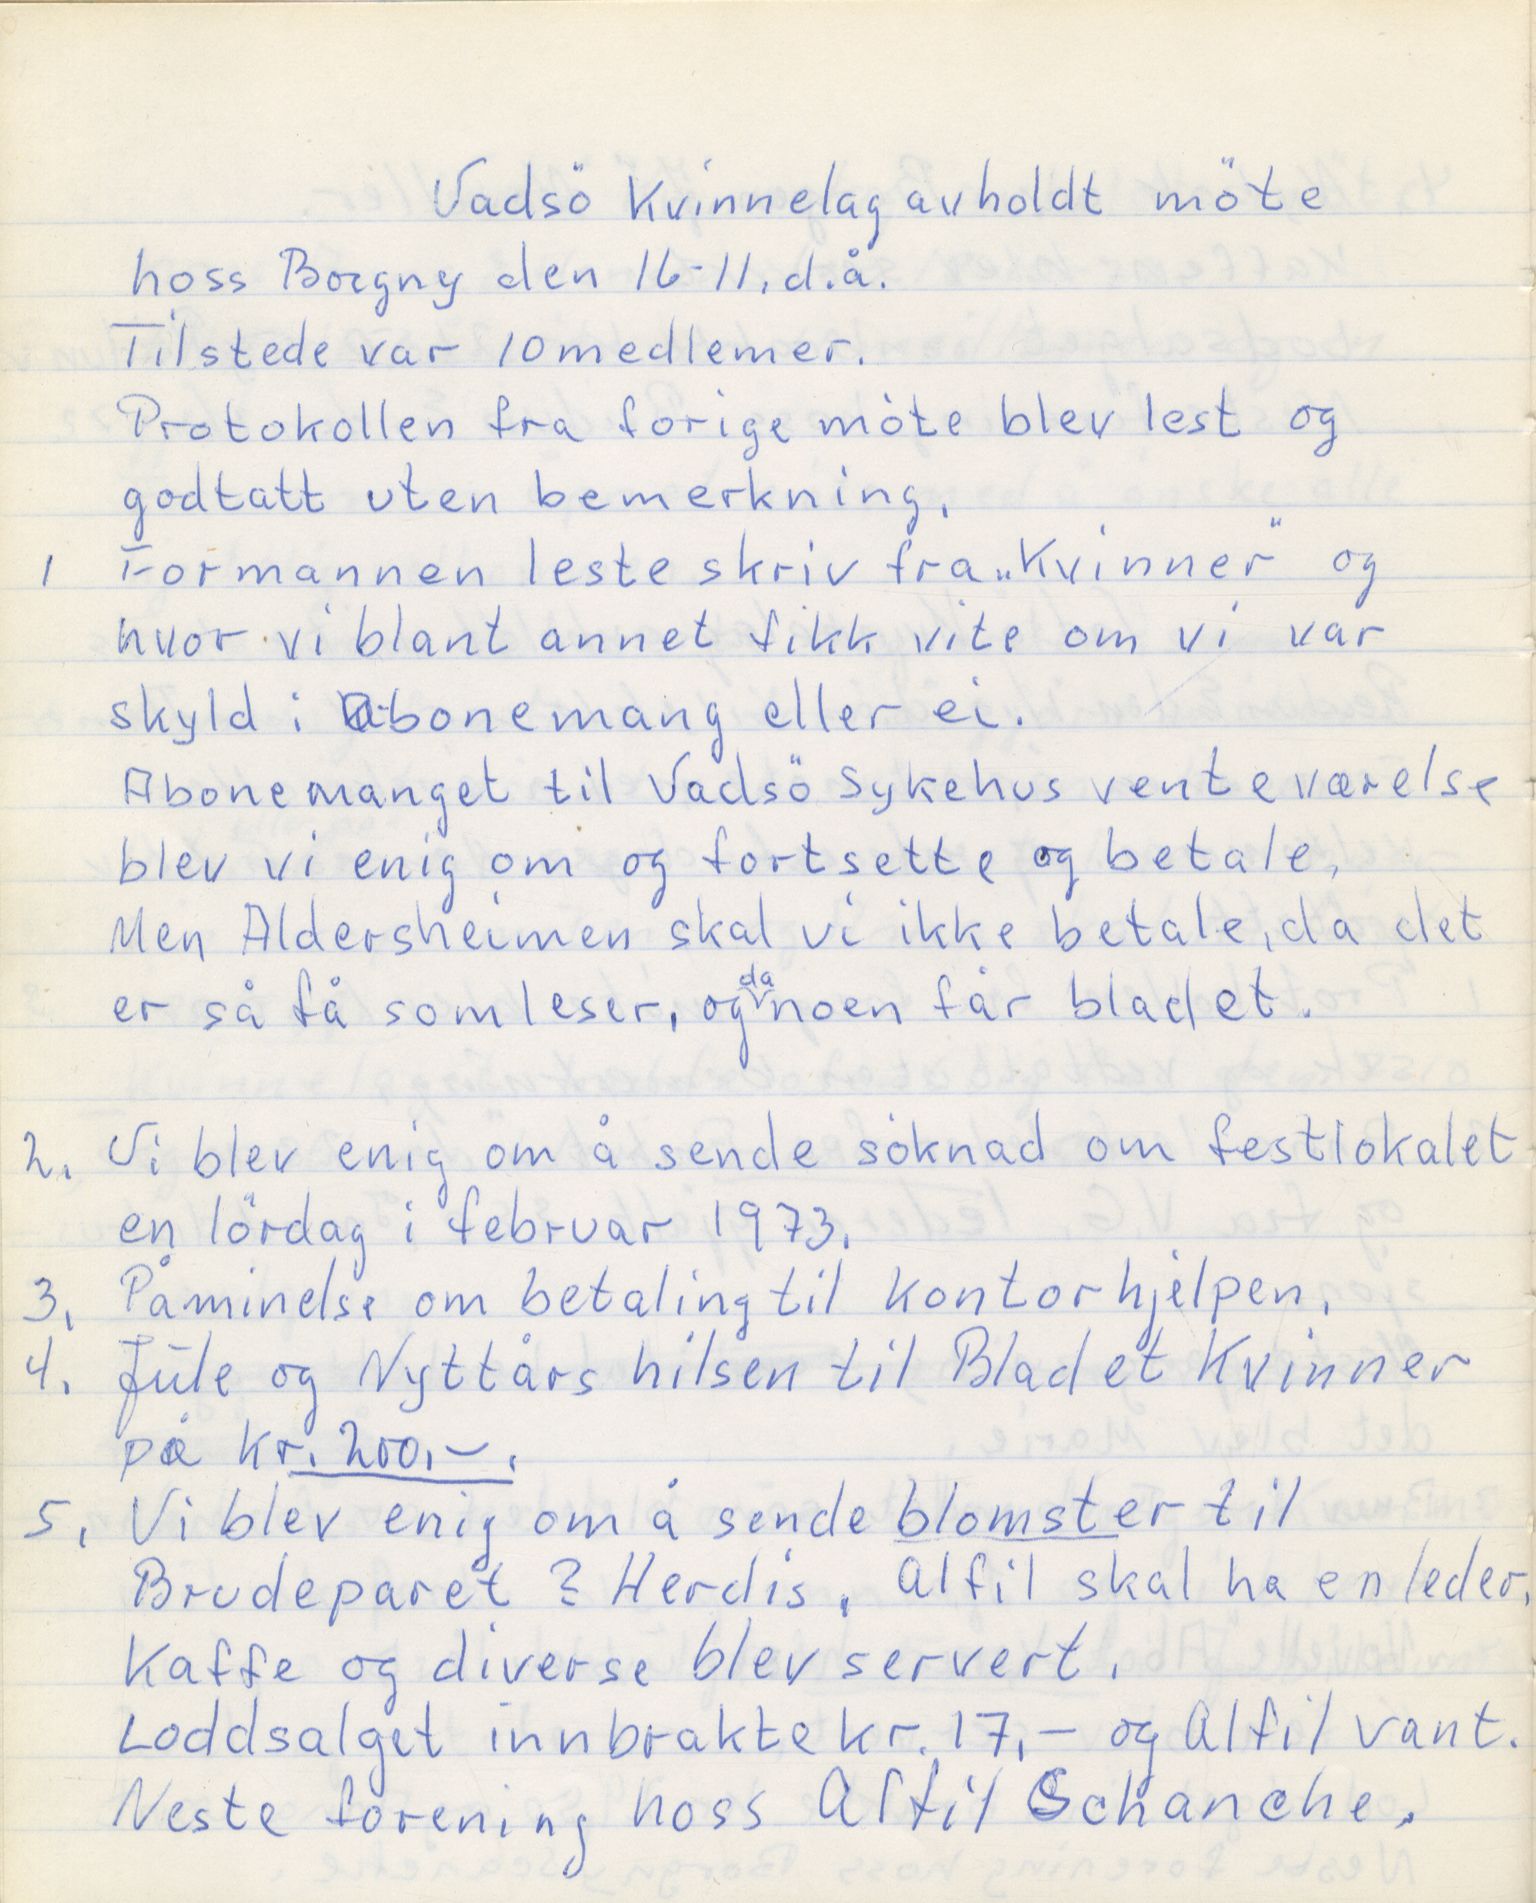 Vadsö Kvinnelag avholdt möte
hoss Borgny den 16-11. d.å.
Tilstede var 10 medlemer.
Protokollen fra forige möte blev lest og
godtatt uten bemerkning.
1 Formannen leste skriv fra „Kvinner" og
hvor vi blant annet fikk vite om vi var
skyld i Abonemang eller ei.
Abonemanget til Vadsö Sykehus venteværelse
blev vi enig om og fortsette og betale,
Men Aldersheimen skal vi ikke betale, da det
er så få som leser, og da noen får bladet.
2. Vi blev enig om å sende söknad om festlokalet
en lördag i februar 1973.
3. Påmindelse om betaling til kontorhjelpen.
4. Jule og Nyttårs hilsen til Bladet Kvinner
på kr. 200.-.
5. Vi blev enig om å sende blomster til
Brudeparet ? Herdis. Alfil skal ha en leder.
Kaffe og diverse blev servert.
Loddsalget innbrakte kr. 17,- og Alfil vant.
Neste forening hoss Alfil Schanche.